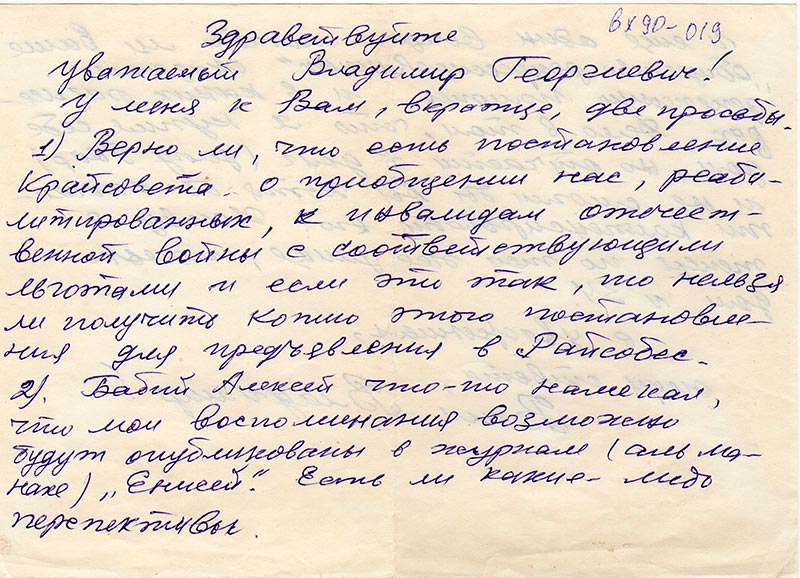 вх90-019
Здравствуйте
уважаемый Владимир Георгиевич!
У меня к Вам, вкратце, две просьбы.
1) Верно ли, что есть постановление
Крайсовета о приобщении нас, реаби-
литированных, к инвалидам отечест-
венной войны с соответствующими
льготами и если это так, то нельзя
ли получить копию этого постановле-
ния для предъявления в Райсобес.
2). Бабий Алексей что-то намекал,
что мои воспоминания возможно
будут опубликованы в журнале (альма-
нахе) „Енисей“. Есть ли какие-либо
перспективы.